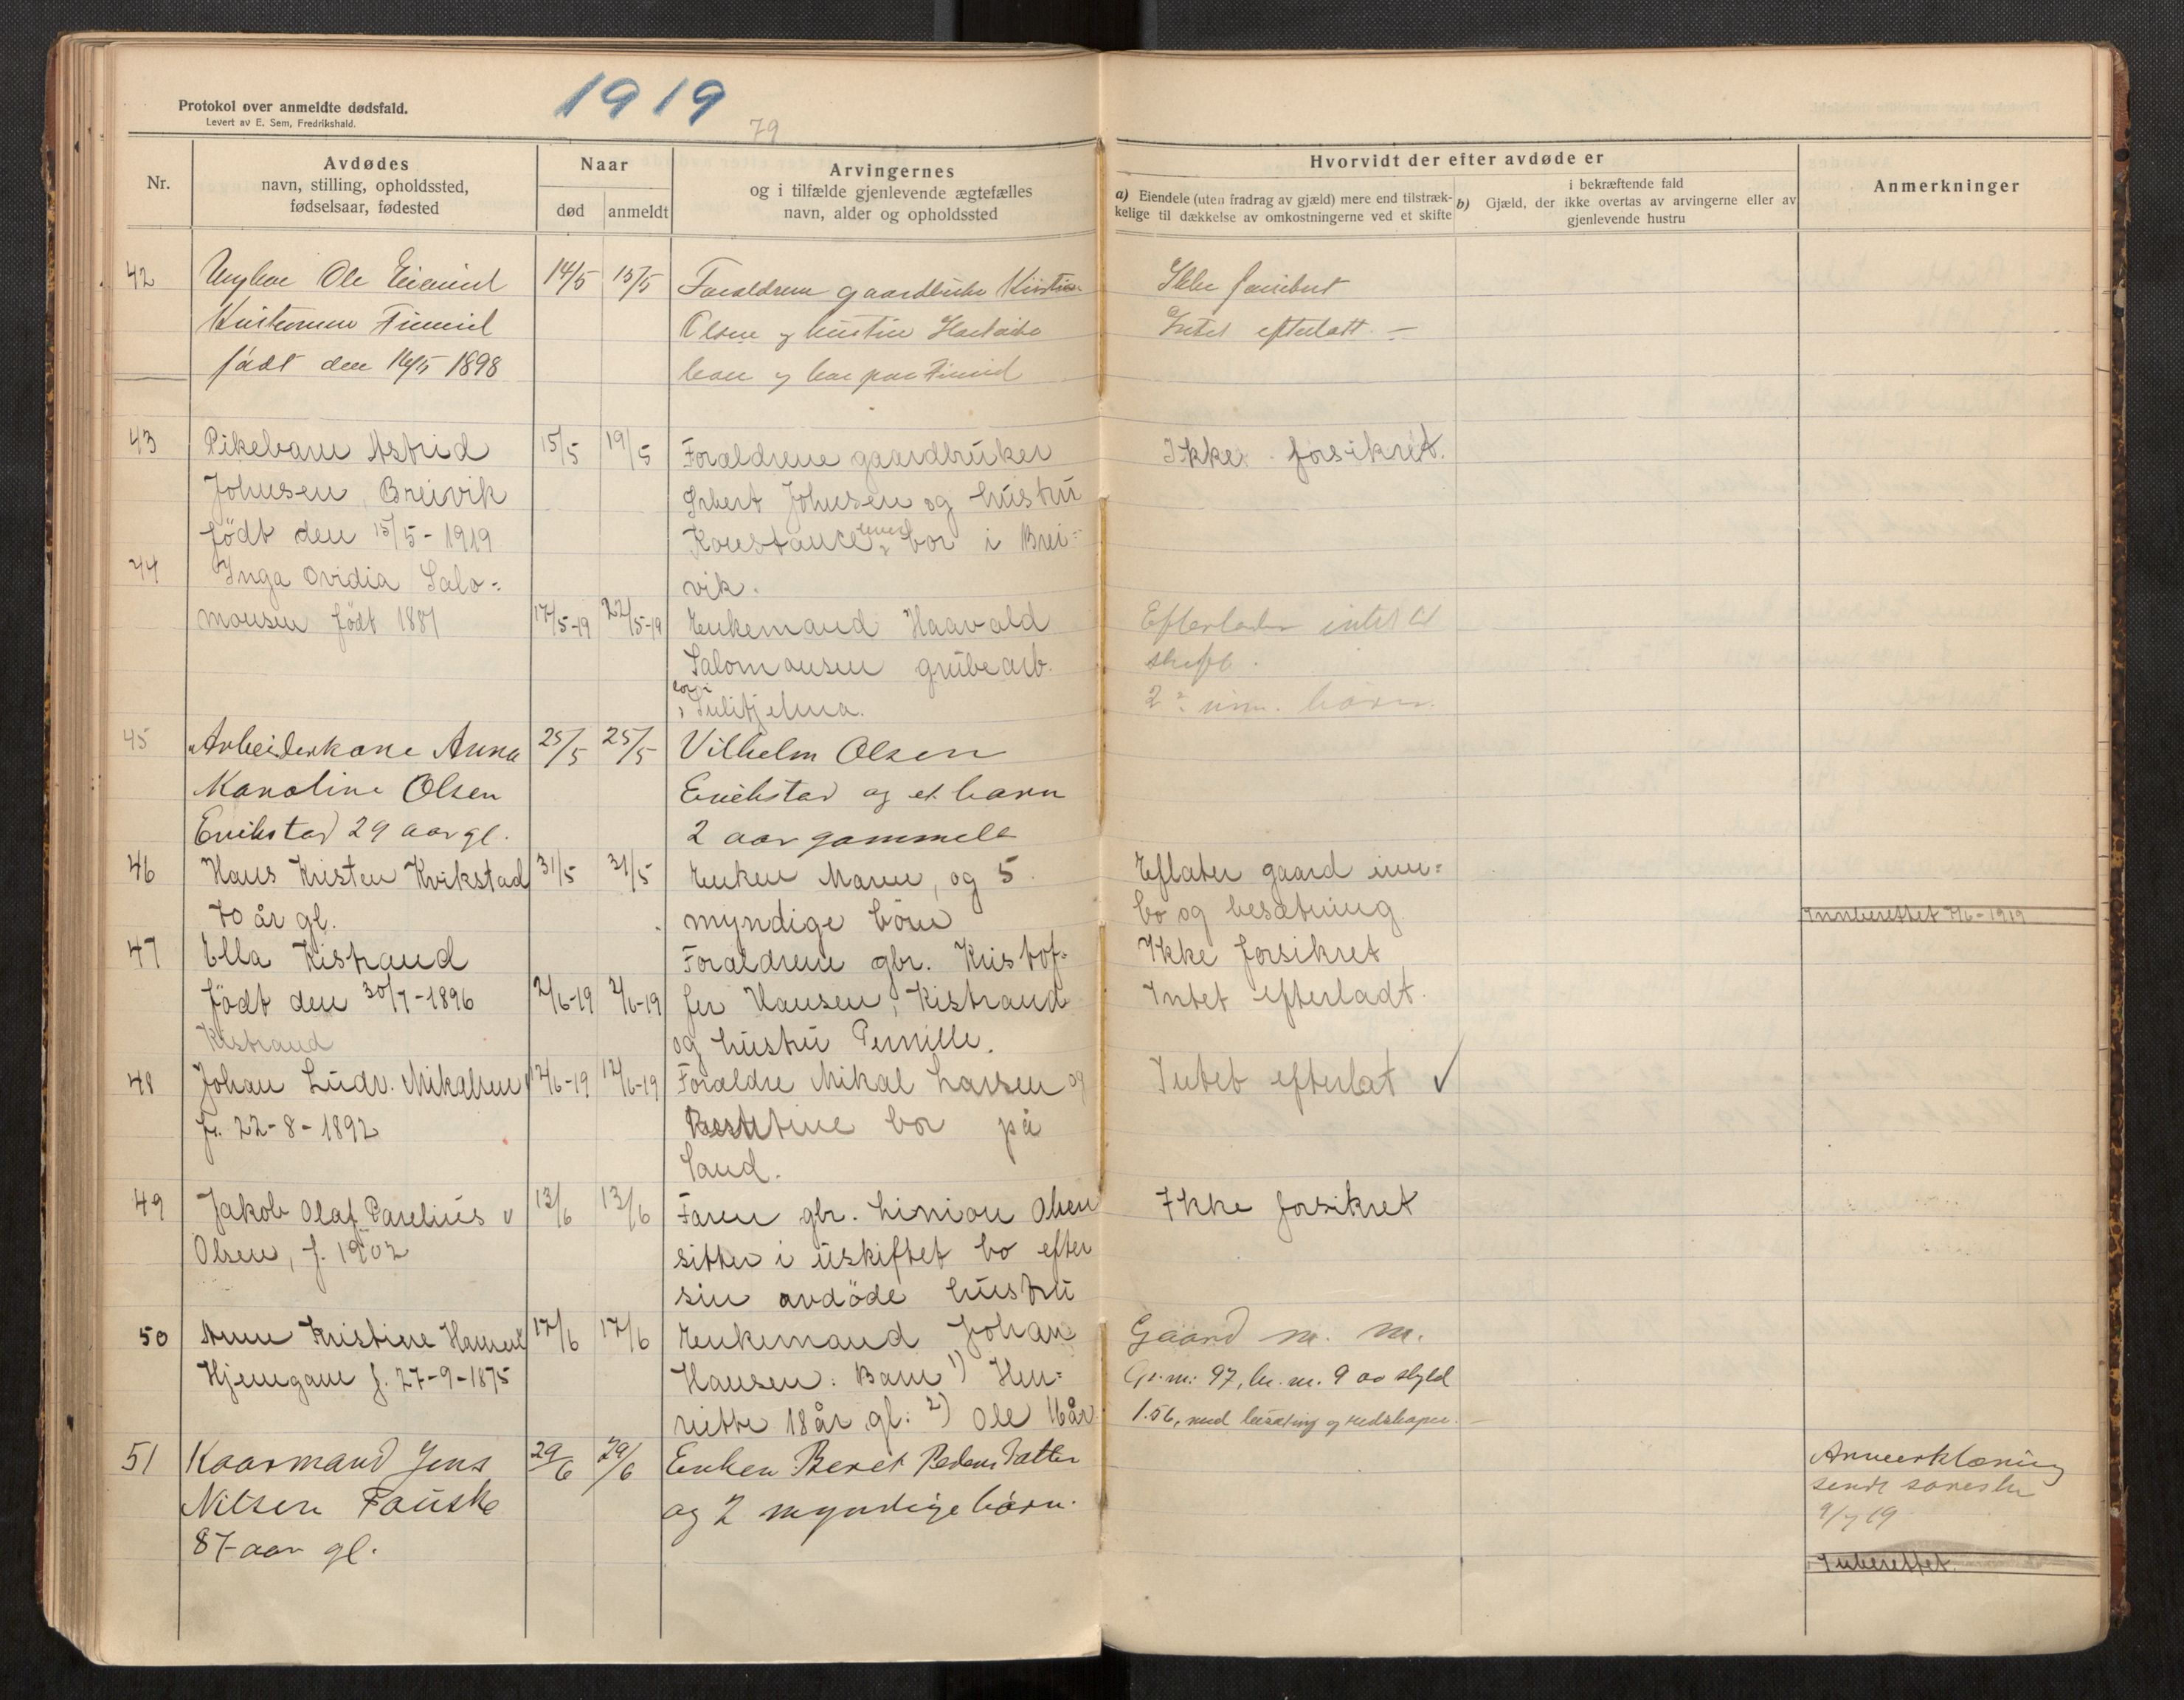 1919
Protokol over anmeldte dødsfald.
Levert av E. Sem, Fredrikshald.
79
Nr.
Avdødes
navn, stilling, opholdssted,
fødselsaar, fødested
Naar
død
anmeldt
Arvingernes
og i tilfælde gjenlevende ægtefælles
navn, alder og opholdssted
Hvorvidt der efter avdøde er
a) Eiendele (uten fradrag av gjæld) mere end tilstræk-
kelige til dækkelse av omkostningerne ved et skifte
i bekræftende fald
b) Gjæld, der ikke overtas av arvingerne eller av
gjenlevende hustru
Anmerkninger
42
Ungkar Ole
født den 16/5 1898
14/5
15/5
Forældrene gaardbruker
Olsen og hustru
bor paa
Ikke
Intet efterlatt. -
43
Pikebarn Astrid
Johnsen, Breivik
födt den 15/5 - 1919
15/5
19/5
Forældrene gaardbruker
Johnsen og hustru
Konstance bor i Brei=
vik.
Ikke forsikret.
44
Inga Ovidia Salo=
monsen födt 1887
17/5-19
22/5-19
Enkemand Haavald
Salomonsen grubearb.
bor i
Sulitjelma.
Efterlader intet til
skifte.
2 um. børn.
45
Arbeiderkone Anna
Karoline Olsen
Erikstad 29 aar gl.
25/5
25/5
Vilhelm Olsen
Erikstad og et barn
2 aar gammelt
46
Hans Kristen Kvikstad
70 år gl.
31/5
31/5
Enken Maren, og 5
myndige börn
Eflater gaard inn=
bo og besætning
Innberettet 7/6-1919
47
Ella Kistrand
födt den 30/7-1896
Kistrand
2/6-19
2/6-19
Forældrene gbr. Kristof=
fer Hansen, Kistrand
og hustru Pernille.
Ikke forsikret
Intet efterladt.
48
Johan Ludv. Mikalsen
f. 22-8-1892
12/6-19
12/6-19
Forældre Mikal Larsen og
bor på
Sand.
Intet efterlat ✓
49
Jakob Olaf Parelius
Olsen, f. 1902
13/6
13/6
Faren gbr. Simion Olsen
sitter i uskiftet bo efter
sin avdöde hustru
Ikke forsikret
50
Anne Kristine Hansen
Hjemgam f. 27-9-1875
17/6
17/6
Enkemand Johan
Hansen: Barn 1) Hen=
riette 18 år gl: 2) Ole 16 år
Gaard m. m.
Gr. nr: 97, br. nr. 9 av skyld
1.56, med besætning og redskaper. -
51
Kaarmand Jens
Nilsen Fauske
87 aar gl.
29/6
29/6
Enken Beret Pedersdatter
og 2 myndige børn.
sendt
9/7 19
Inberettet.